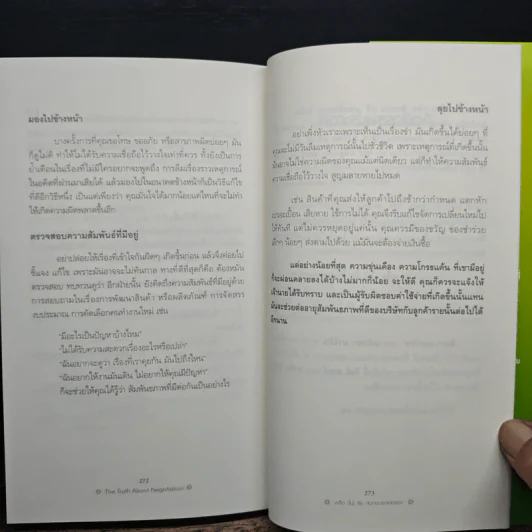 มองไปข้างหน้า
บางครั้งการที่คุณขอโทษ ขออภัย หรือสารภาพผิดบ่อยๆ มัน
ก็ดูไม่ดี ทำให้ไม่ได้รับความเชื่อถือไว้วางใจเท่าที่ควร ทั้งยังเป็นการ
ย้ำเตือนในเรื่องที่ไม่มีใครอยากจะพูดถึง การลืมเรื่องราวเหตุการณ์
ในอดีตที่ผ่านมาเสียได้ แล้วมองไปในอนาคตข้างหน้าก็เป็นวิธีแก้ไข
ที่ดีอีกวิธีหนึ่ง เป็นแต่เพียงว่า คุณมั่นใจได้มากน้อยแค่ไหนที่จะไม่ทำ
ให้เกิดความผิดพลาดขึ้นอีก
ตรวจสอบความสัมพันธ์ที่มีอยู่
อย่าปล่อยให้เรื่องที่เข้าใจกันผิดๆ เกิดขึ้นก่อน แล้วจึงค่อยไป
ชี้แจง แก้ไข เพราะมันอาจจะไม่ทันกาล ทางที่ดีที่สุดก็คือ ต้องหมั่น
ตรวจสอบ ทบทวนดูว่า อีกฝ่ายนั้น ยังคิดถึงความสัมพันธ์ที่มีอยู่ด้วย
การสอบถามในเรื่องการพัฒนาสินค้า หรือผลิตภัณฑ์ การจัดสรร
งบประมาณ การคัดเลือกคนทำงานใหม่ เช่น
"มีอะไรเป็นปัญหาบ้างไหม"
"ไม่ได้รับความสะดวกเรื่องอะไรหรือเปล่า"
"ฉันอยากจะดูว่า เรื่องที่เราคุยกัน มันไปถึงไหน"
"ฉันอยากให้งานมันเดิน ไม่อยากให้คุณมีปัญหา"
ก็จะช่วยให้คุณได้รู้ว่า สัมพันธภาพที่มีต่อกันเป็นอย่างไร
272
The Truth About Negotiations
ลุยไปข้างหน้า
อย่าเพิ่งหัวเราะเพราะเห็นเป็นเรื่องขำ มันเกิดขึ้นได้บ่อยๆ ที่
คุณจะไม่มีวันลืมเหตุการณ์นั้นไปชั่วชีวิต เพราะเหตุการณ์ที่เกิดขึ้นนั้น
มันอาจไม่ใช่ความผิดของคุณแม้แต่นิดเดียว แต่ก็ทำให้ความสัมพันธ์
ความเชื่อถือไว้วางใจ สูญมลายหายไปหมด
เช่น สินค้าที่คุณส่งให้ลูกค้าไปถึงช้ากว่ากำหนด แตกหัก
แปดเปื้อน เสียหาย ใช้การไม่ได้ คุณจึงรีบแก้ไขจัดการเปลี่ยนใหม่ไป
ให้ทันที แต่ไม่ควรหยุดอยู่แค่นั้น คุณควรมีของขวัญ ของชำร่วย
เล็กๆ น้อยๆ ส่งตามไปด้วย แม้มันจะต้องจ่ายเงินซื้อ
แต่อย่างน้อยที่สุด ความขุ่นเคือง ความโกรธแค้น ที่เขามีอยู่
ก็จะผ่อนคลายลงได้บ้างไม่มากก็น้อย จะให้ดี คุณก็ควรจะแจ้งให้
เจ้านายได้รับทราบ และเป็นผู้รับผิดชอบค่าใช้จ่ายที่เกิดขึ้นนั้นแทน
มันจะช่วยต่ออายุสัมพันธภาพที่ดีของบริษัทกับลูกค้ารายนั้นต่อไปได้
อีกนาน
273